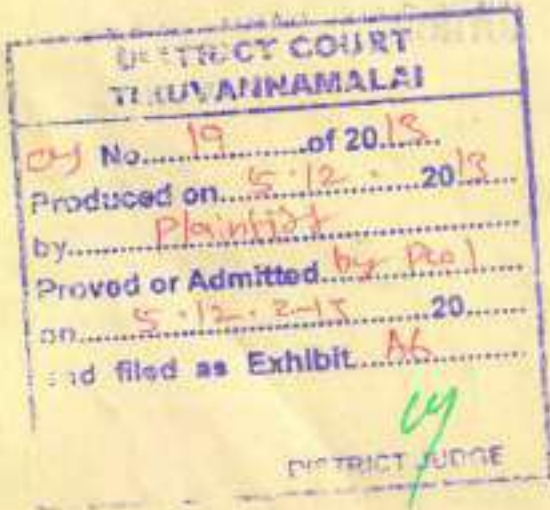 DISTRICT COURT
TIRUVANNAMALAI
OS No. 19 of 2013
Produced on 5.12. 2013
by Plaintiff
Proved or Admitted by
on 5.12. 20
and filed as Exhibit A6
DISTRICT JUDGE